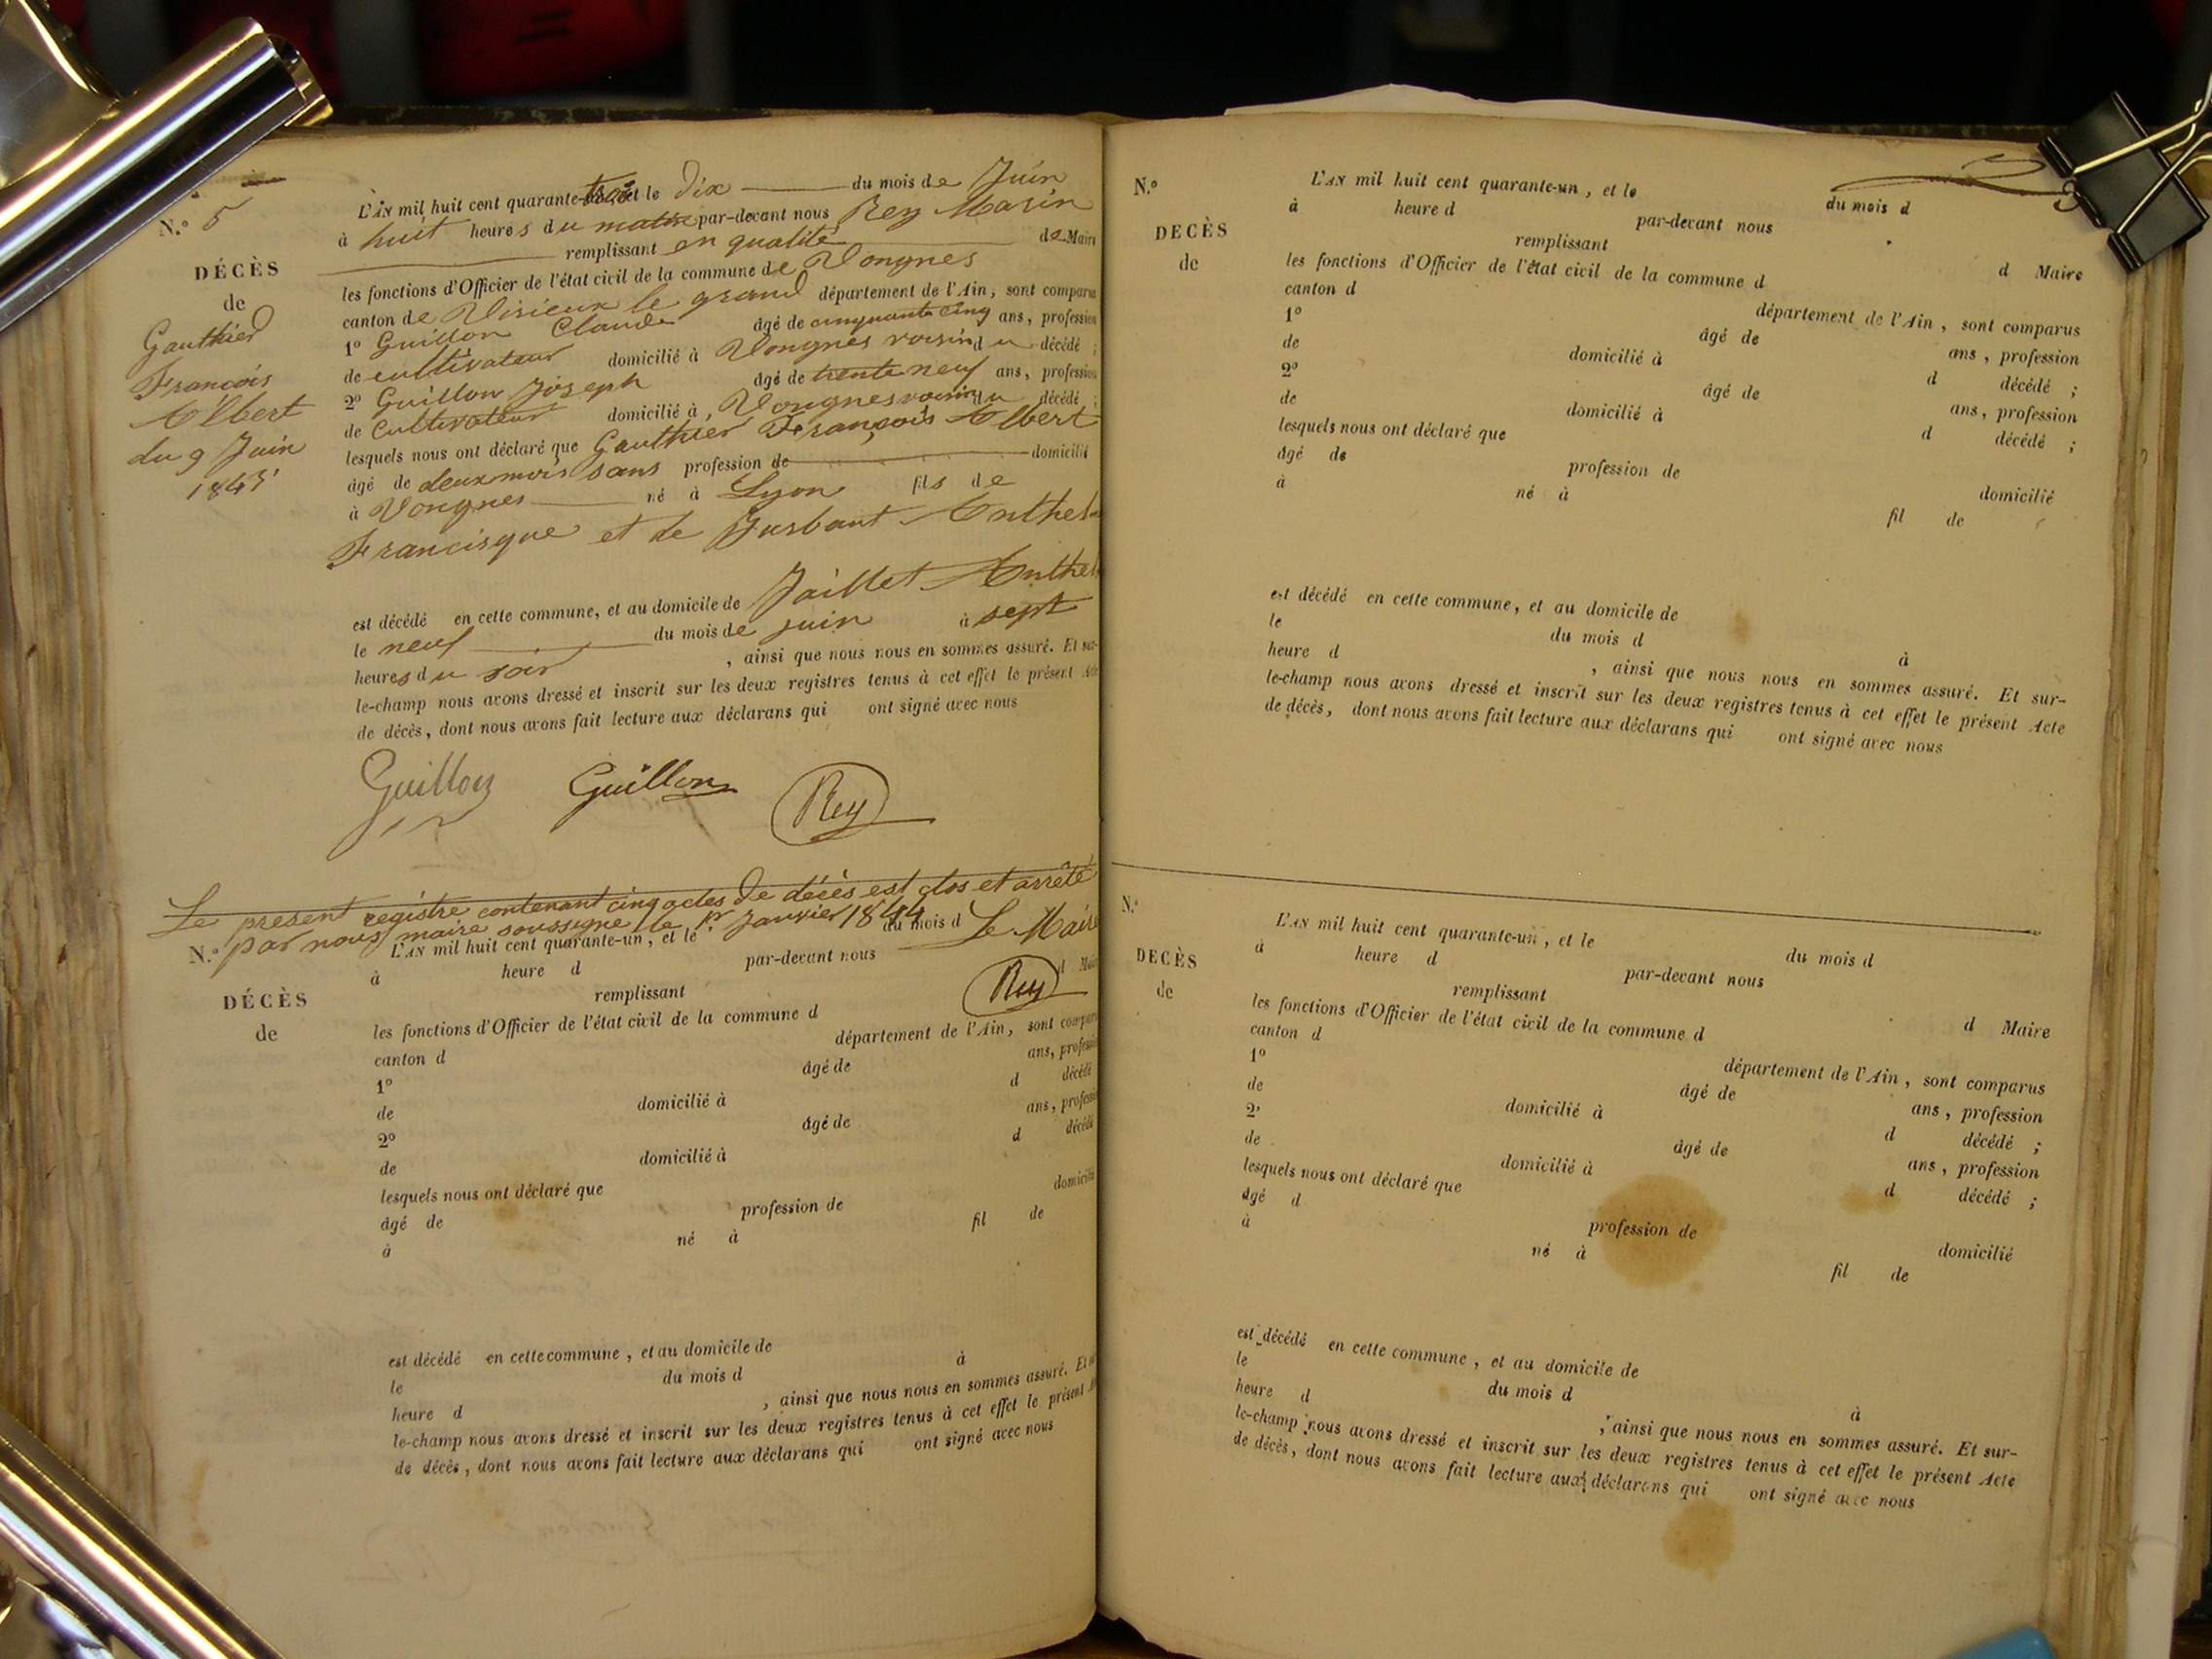 N.° 5
DÉCÈS
de
Gauthier
François
Albert
du 9 Juin
1843
L'AN mil huit cent quarante-trois et le Dix du mois de Juin
à huit heures du matin par-devant nous Rey Marin
remplissant en qualité de Maire
les fonctions d'Officier de l'état civil de la commune de Vongnes
canton de Virieux le grand département de l'Ain, sont comparus
1° Guillon Claude âgé de cinquante cinq ans, profession
de cultivateur domicilié à Vongnes voisin du décédé ;
2° Guillon Joseph âgé de trente neuf ans, profession
de Cultivateur domicilié à Vongnes voisin du décédé ;
lesquels nous ont déclaré que Gauthier François Albert
âgé de deux mois sans profession de domicilié
à Vongnes né à Lyon fils de
Francisque et de
est décédé en cette commune, et au domicile de Jaillet
le neuf du mois de juin à sept
heures du soir , ainsi que nous nous en sommes assuré. Et sur-
le-champ nous avons dressé et inscrit sur les deux registres tenus à cet effet le présent Acte
de décès, dont nous avons fait lecture aux déclarans qui ont signé avec nous
Guillon Guillon Rey
Le present registre contenant cinq actes de décès est clos et arrêté
par nous maire soussigné le 1er Janvier 1844 Le Maire
Rey
N.° L'AN mil huit cent quarante-un, et le du mois d
à heure d par-devant nous
remplissant d Maire
DÉCÈS
de
les fonctions d'Officier de l'état civil de la commune d
canton d département de l'Ain, sont comparus
1° âgé de ans, profession
de domicilié à d décédé
2° âgé de ans, profession
de domicilié à d décédé
lesquels nous ont déclaré que
âgé de profession de domicilié
à né à fil de
est décédé en cette commune, et au domicile de
le du mois d à
heure d , ainsi que nous nous en sommes assuré. Et sur-
le-champ nous avons dressé et inscrit sur les deux registres tenus à cet effet le présent Acte
de décès, dont nous avons fait lecture aux déclarans qui ont signé avec nous
N.°
DECÈS
de
L'AN mil huit cent quarante-un, et le du mois d
à heure d par-devant nous
remplissant d Maire
les fonctions d'Officier de l'état civil de la commune d
canton d département de l'Ain, sont comparus
1° âgé de ans, profession
de domicilié à d décédé ;
2° âgé de ans, profession
de domicilié à d décédé ;
lesquels nous ont déclaré que
âgé de profession de domicilié
à né à fil de
est décédé en cette commune, et au domicile de
le du mois d à
heure d , ainsi que nous nous en sommes assuré. Et sur-
le-champ nous avons dressé et inscrit sur les deux registres tenus à cet effet le présent Acte
de décès, dont nous avons fait lecture aux déclarans qui ont signé avec nous
N.°
DECÈS
de
L'AN mil huit cent quarante-un, et le du mois d
à heure d par-devant nous
remplissant d Maire
les fonctions d'Officier de l'état civil de la commune d
canton d département de l'Ain, sont comparus
1° âgé de ans, profession
de domicilié à d décédé ;
2° âgé de ans, profession
de domicilié à d décédé ;
lesquels nous ont déclaré que
âgé d profession de domicilié
à né à fil de
est décédé en cette commune, et au domicile de
le du mois d à
heure d , ainsi que nous nous en sommes assuré. Et sur-
le-champ nous avons dressé et inscrit sur les deux registres tenus à cet effet le présent Acte
de décès, dont nous avons fait lecture aux déclarans qui ont signé avec nous